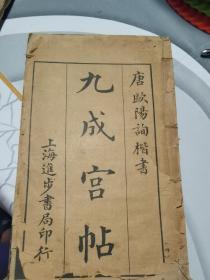 唐歐陽詢楷書
九成宫帖
上海進步書局印行